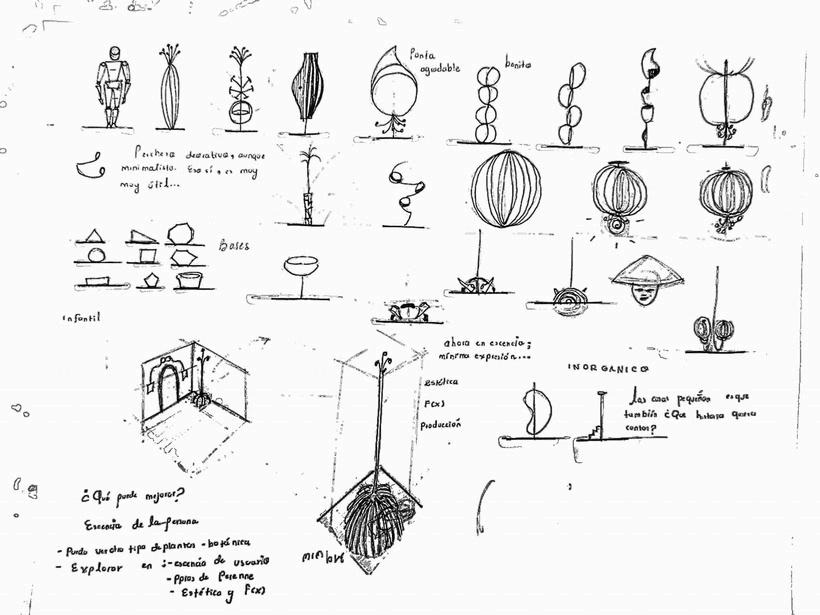 Punta
agudable
bonito
Perchero decorativo, aunque
minimalista. Eso sí, es muy
muy útil...
Bases
Infantil
ahora en escencia;
mínima expresión...
INORGÁNICO
Estética
F(x)
Producción
las cosas pequeñas es que
también ¿Que historia quiero
contar?
¿Qué puede mejorar?
Escencia de la persona
- Puedo ver otro tipo de plantas - botánica
- Explorar en :- escencia de usuario
- Ppios de Perenne
- Estética y F(x)